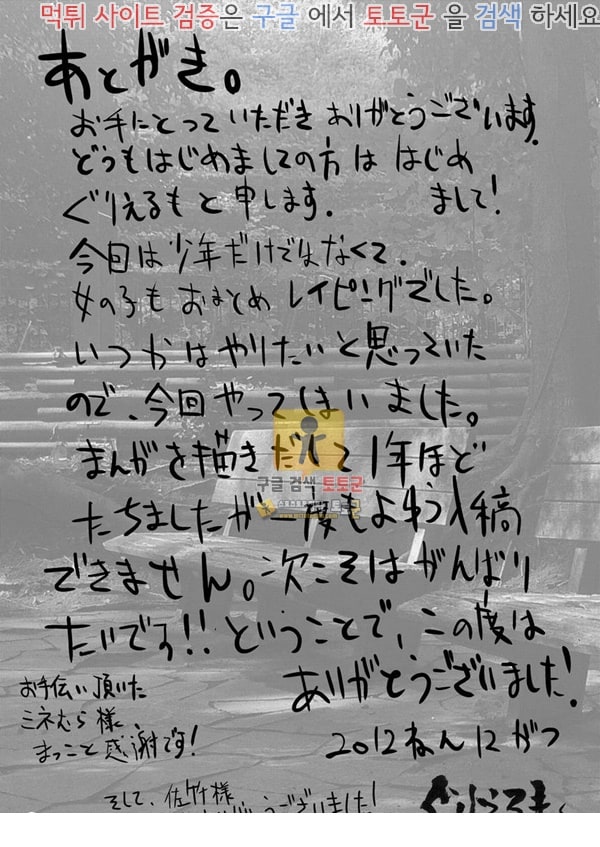 먹튀 사이트 검증은 구글 에서 토토군 을 검색 하세요
あとがき。
お手にとっていただきありがとうございます。
どうもはじめましての方は はじめ
まして!
ぐりえるもと申します。
今回は少年だけではなくて、
女の子もおまとめレイピングでした。
いつかはやりたいと思っていた
ので、今回やってしまいました。
まんがを描きだして1年ほど
구글 검색 토토군
たちましたが一度もよゆう入稿
できません。次こそはがんばり
たいです!!ということで、この度は
ありがとうございました!
お手伝い頂いた
ミネむら様、
まっこと感謝です!
2012ねん12がつ
そして、佐竹様
うございました!
ぐりえるも。